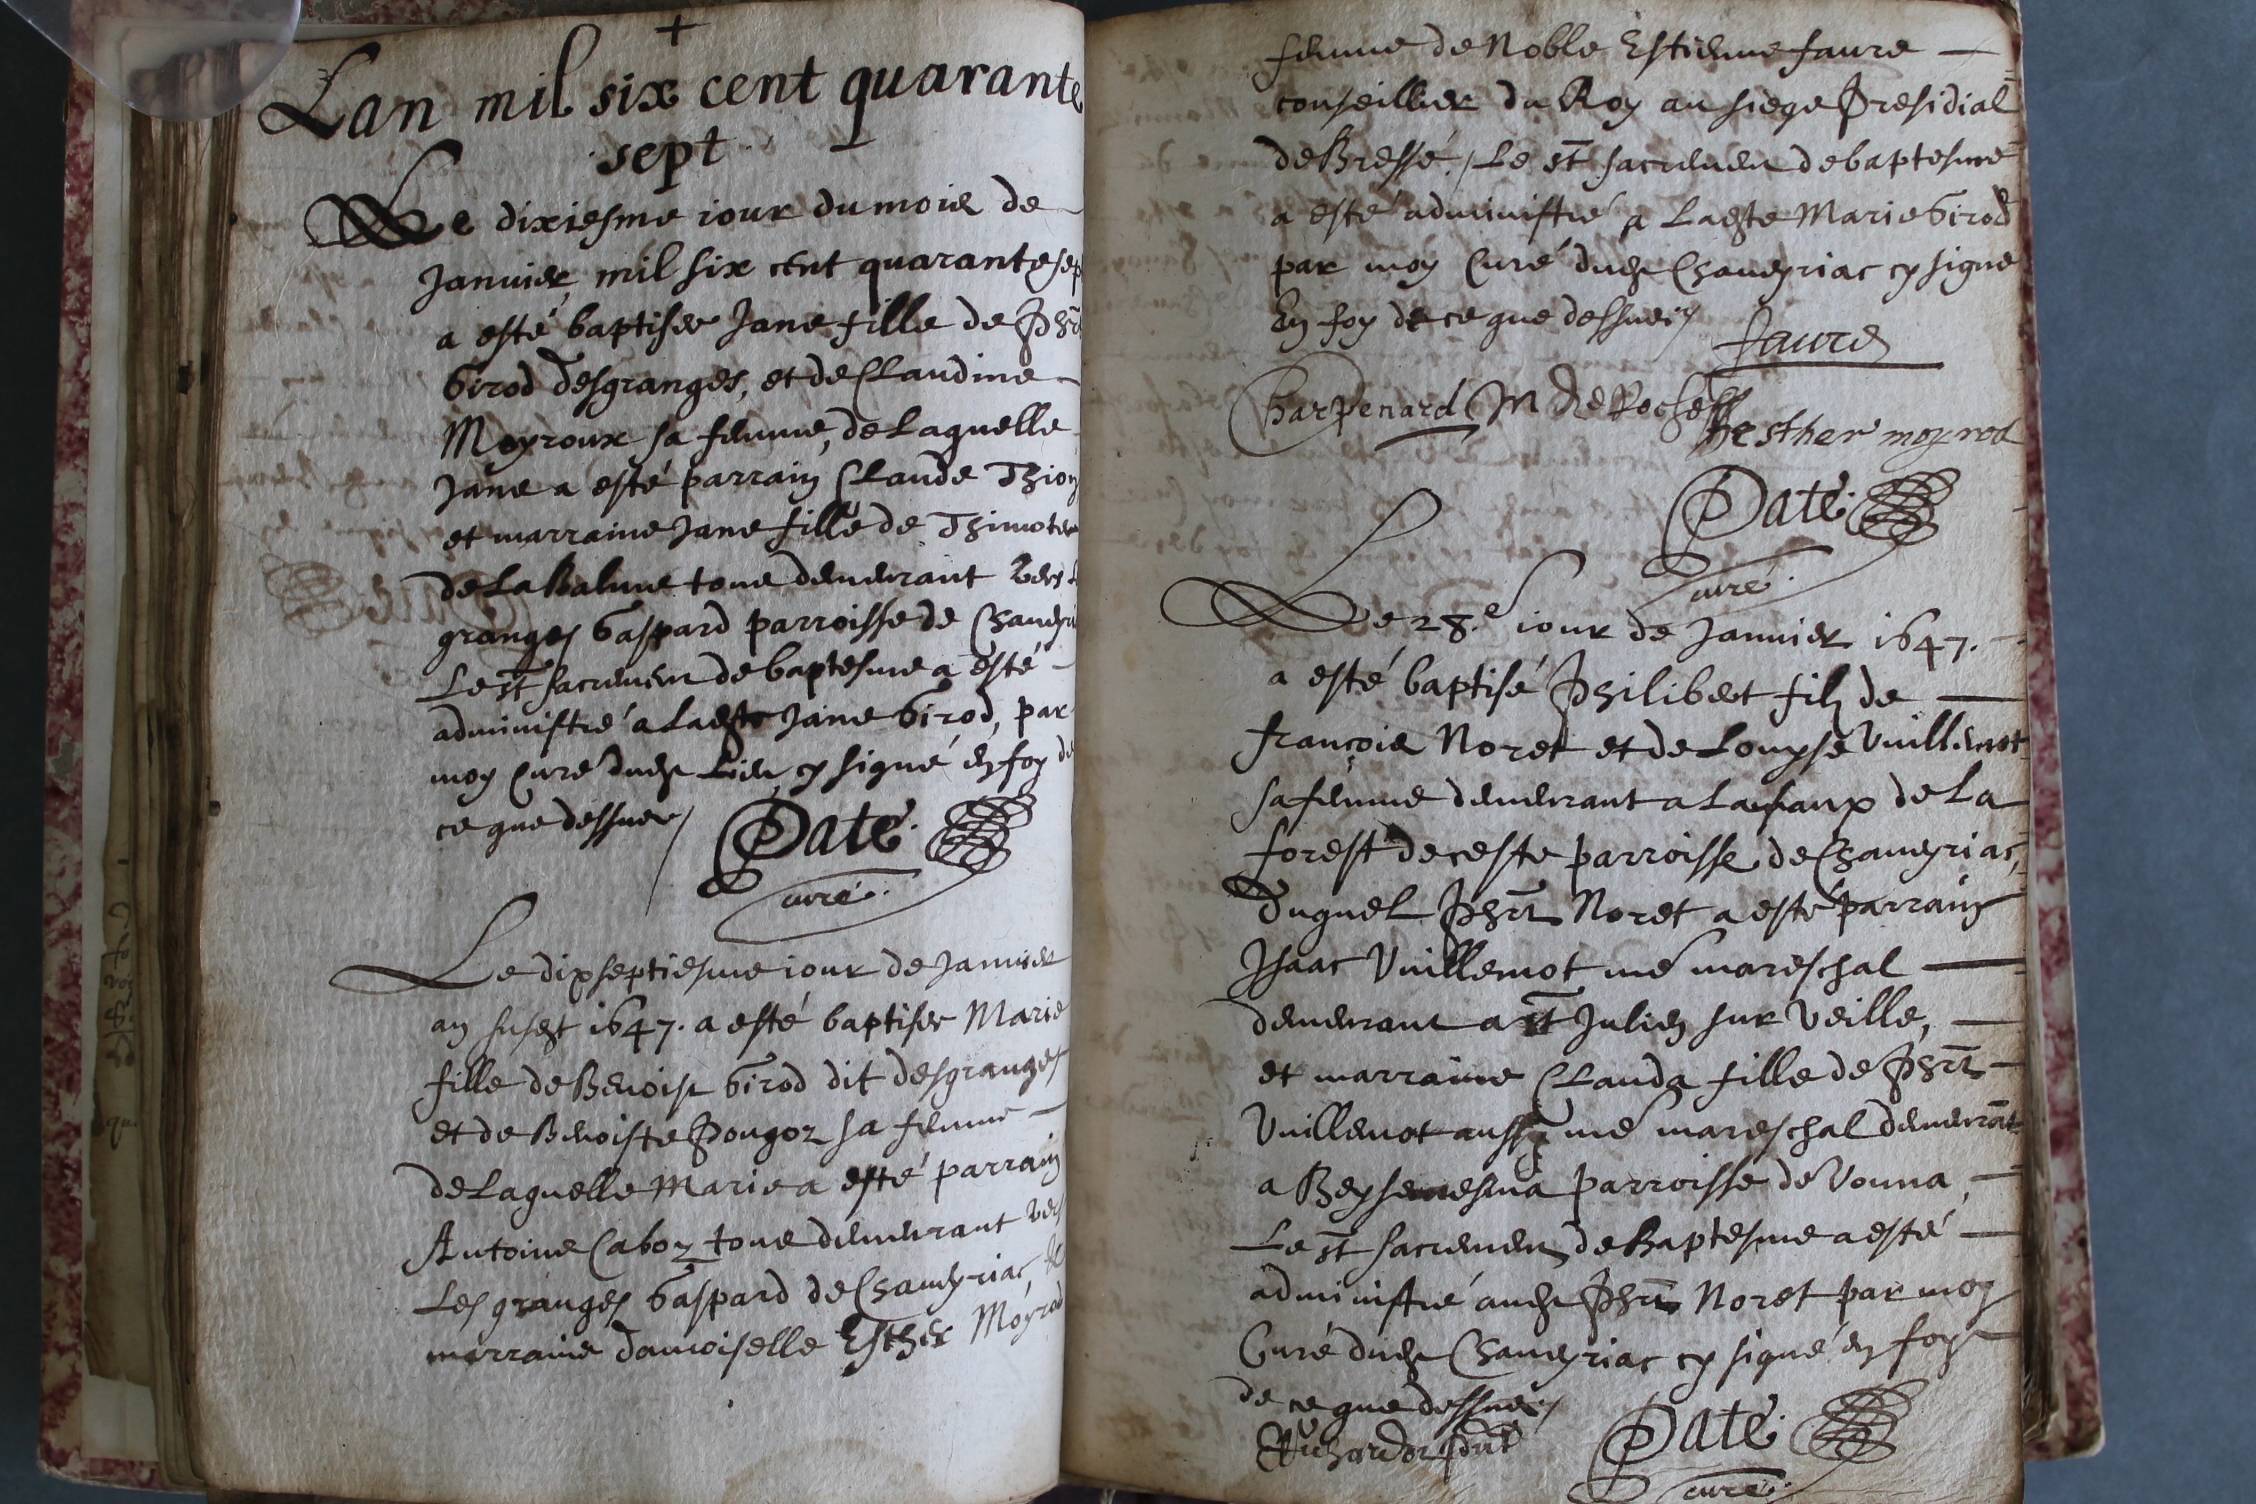 +
Lan mil six cent quarante
sept
Le dixiesme iour du mois de
Januier mil six cent quarante sep
a esté baptisee Jane fille de Phrt
Girod desgranges, et de Claudine
Moyroux sa femme, de Laquelle
Jane a esté parrain Claude Thion
et marraine Jane fille de Thimotee
de La Balme tous demeurant vers L
granges Gaspard parroisse de Chaueyri
Le st sacrement de baptesme a esté
administré a Ladte Jane Girod, par
moy Curé dudt Lieu cy signé en foy de
ce que dessus /
Daté.
curé.
Le dixseptiesme iour de Januier
an susdt 1647. a esté baptisee Marie
fille de Benoist Girod dit desgranges
et de Benoiste Pougoz sa femme
de Laquelle Marie a esté parrain
Antoine Caboz tous demeurant vers
Les granges Gaspard de Chaueyriac, &
marraine damoiselle Esther Moyrod
femme de Noble Estienne faure
conseillier du Roy au siege Presidial
de Bresse. / Le st sacrement de baptesme
a esté administré a Ladte Marie Girod
par moy Curé dudt Chaueyriac cy signé
En foy de ce que dessus /
faure
Charpenard M De Roche
hesther moyrod
Daté.
curé.
Le 28.e iour de Januier 1647.
a esté baptisé Philibert filz de
françois Noret et de Louyse Vuillemot
sa femme demeurant a Lachaux de La
forest de ceste parroisse de Chaueyriac,
duquel Phrt Noret a esté parrain
Isaac Vuillemot me mareschal
demeurant a st Julien sur Veille,
et marraine Clauda fille de Phrt
Vuillemot aussy me mareschal demeurant
a parroisse de Vonna,
Le st sacrement de Baptesme a esté
administré audt Phrt Noret par moy
Curé dudt Chaueyriac cy signé en foy
de ce que dessus /
Daté.
curé.